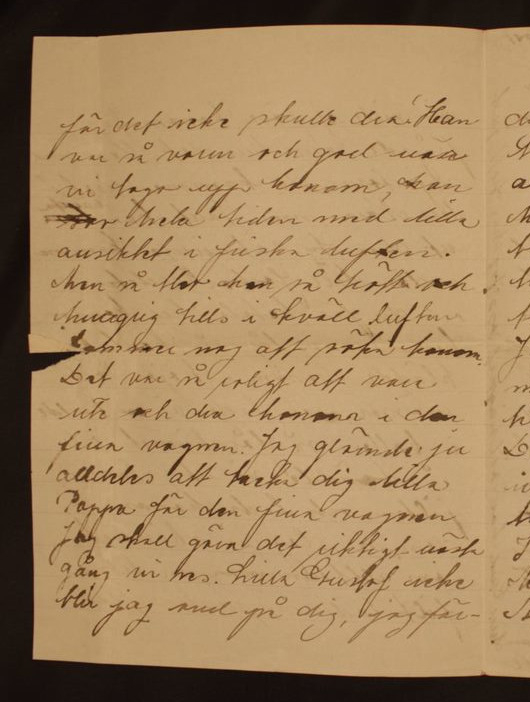 för det icke skulle dra! Han
var så varm och god när
vi togo upp honom, han
hela tiden med lilla
ansiktet i friska luften.
Men så blef han så trött och
hungrig tills i kväll luften
nog att söfva honom.
Det var så roligt att vara
ute och dra honom i den
fina vagnen. Jag glömde ju
alldeles att tacka dig lilla
Pappa för den fina vagnen
Jag skall göra det riktigt nästa
gång vi res. Lilla Gustaf icke
blir jag ond på dig, jag för-